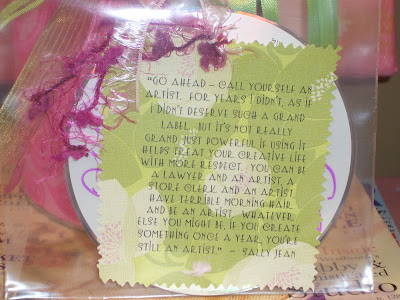 "GO AHEAD - CALL YOURSELF AN
ARTIST. FOR YEARS I DIDN'T, AS IF
I DIDN'T DESERVE SUCH A GRAND
LABEL. BUT IT'S NOT REALLY
GRAND, JUST POWERFUL IF USING IT
HELPS TREAT YOUR CREATIVE LIFE
WITH MORE RESPECT. YOU CAN BE
A LAWYER AND AN ARTIST, A
STORE CLERK AND AN ARTIST
HAVE TERRIBLE MORNING HAIR
AND BE AN ARTIST. WHATEVER
ELSE YOU MIGHT BE, IF YOU CREATE
SOMETHING ONCE A YEAR, YOU'RE
STILL AN ARTIST." - SALLY JEAN